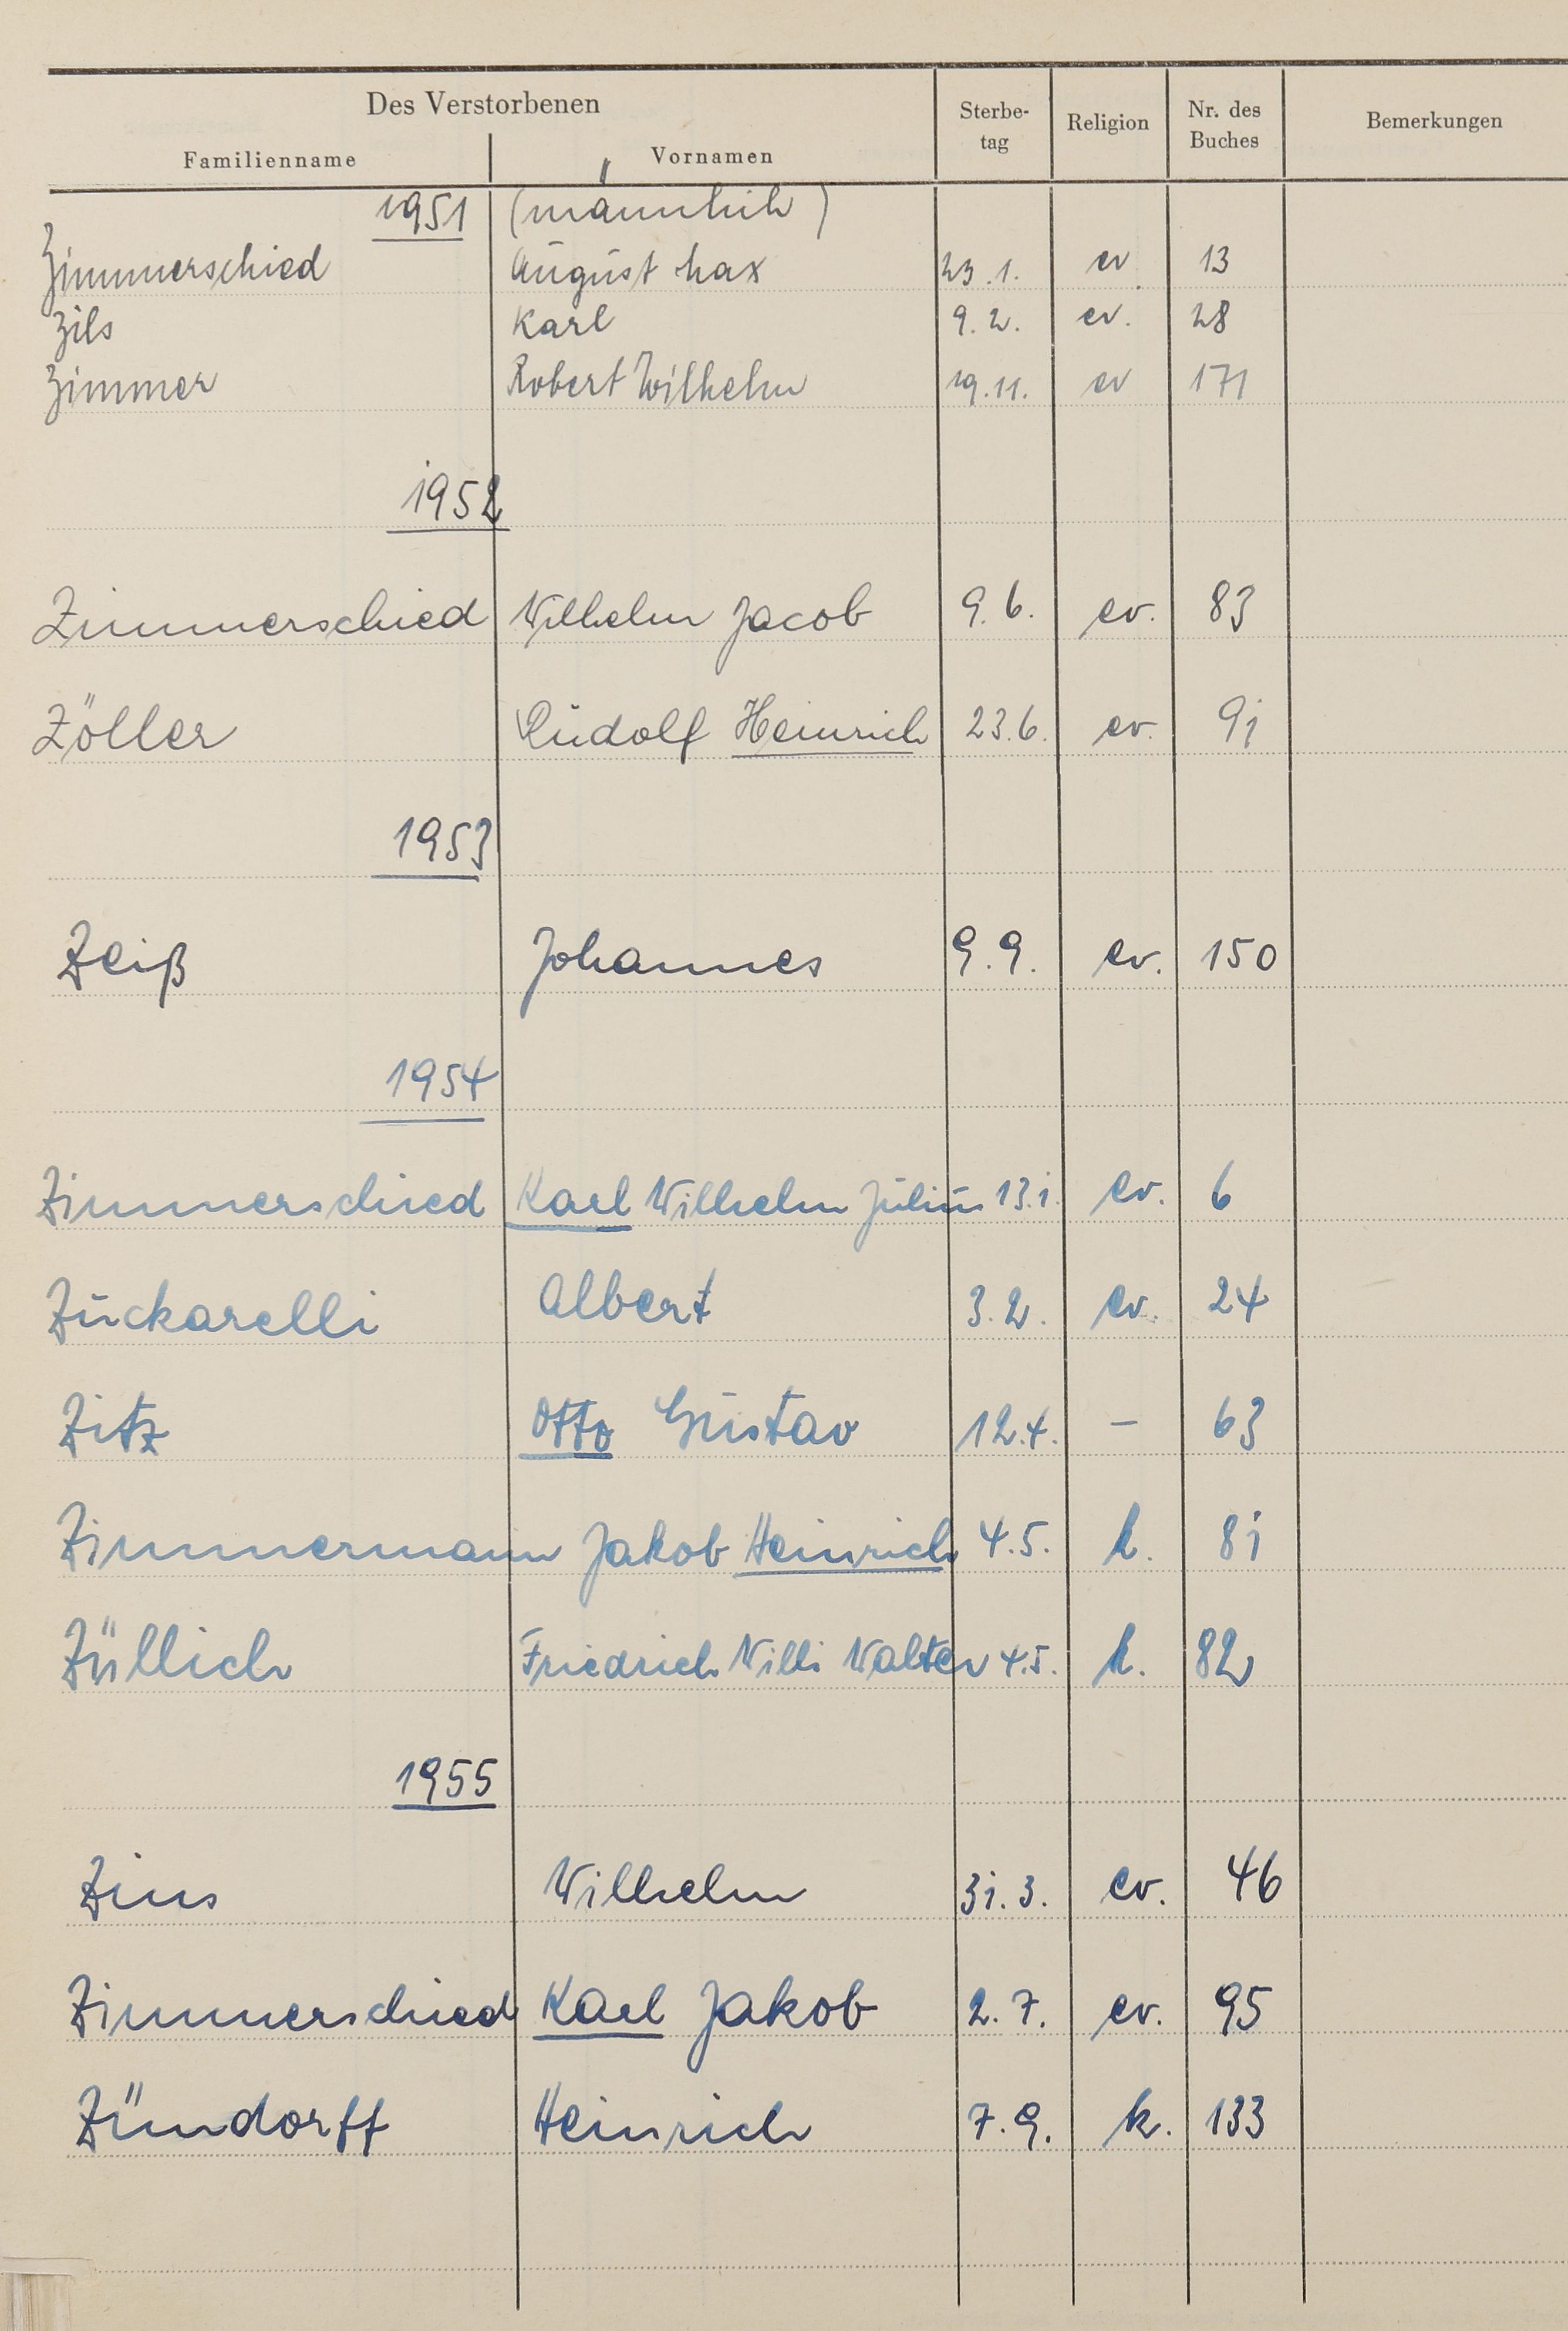 Des Verstorbenen
Familienname Vornamen Sterbe-tag Religion Nr. des Buches Bemerkungen
1951 (männlich)
Zimmerschied August Max 23.1. ev. 13
Zils Karl 9.2. ev. 28
Zimmer Robert Wilhelm 19.11. ev 171
1952
Zimmerschied Wilhelm Jacob 9.6. ev. 83
Zöller Rudolf Heinrich 23.6. ev. 91
1953
Zeiß Johannes 9.9. ev. 150
1954
Zimmerschied Karl Wilhelm Julius 13.1. ev. 6
Zuckarelli Albert 3.2. ev. 24
Zitz Otto Gustav 12.4. – 63
Zimmermann Jakob Heinrich 4.5. k. 81
Züllich Friedrich Willi Walter 4.5. k. 82
1955
Zins Wilhelm 31.3. ev. 46
Zimmerschied Karl Jakob 2.7. ev. 95
Zündorff Heinrich 7.9. k. 133